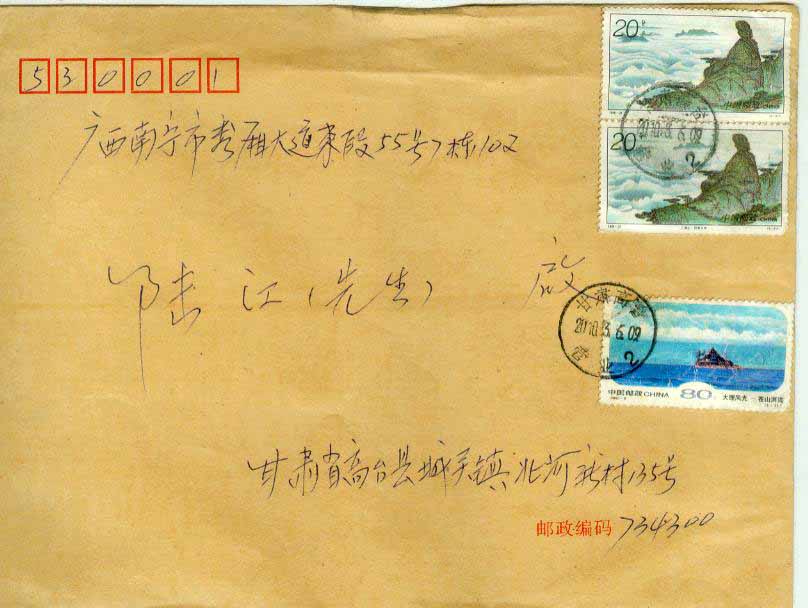 530001
20分
广西南宁市秀厢大道东段55号7栋102
20分
陆江(先生) 启
甘肃高台
2010.3.6.09
营业2
中国邮政CHINA 80分 大理风光·苍山洱海
甘肃省高台县城关镇北河新村135号
邮政编码 734300